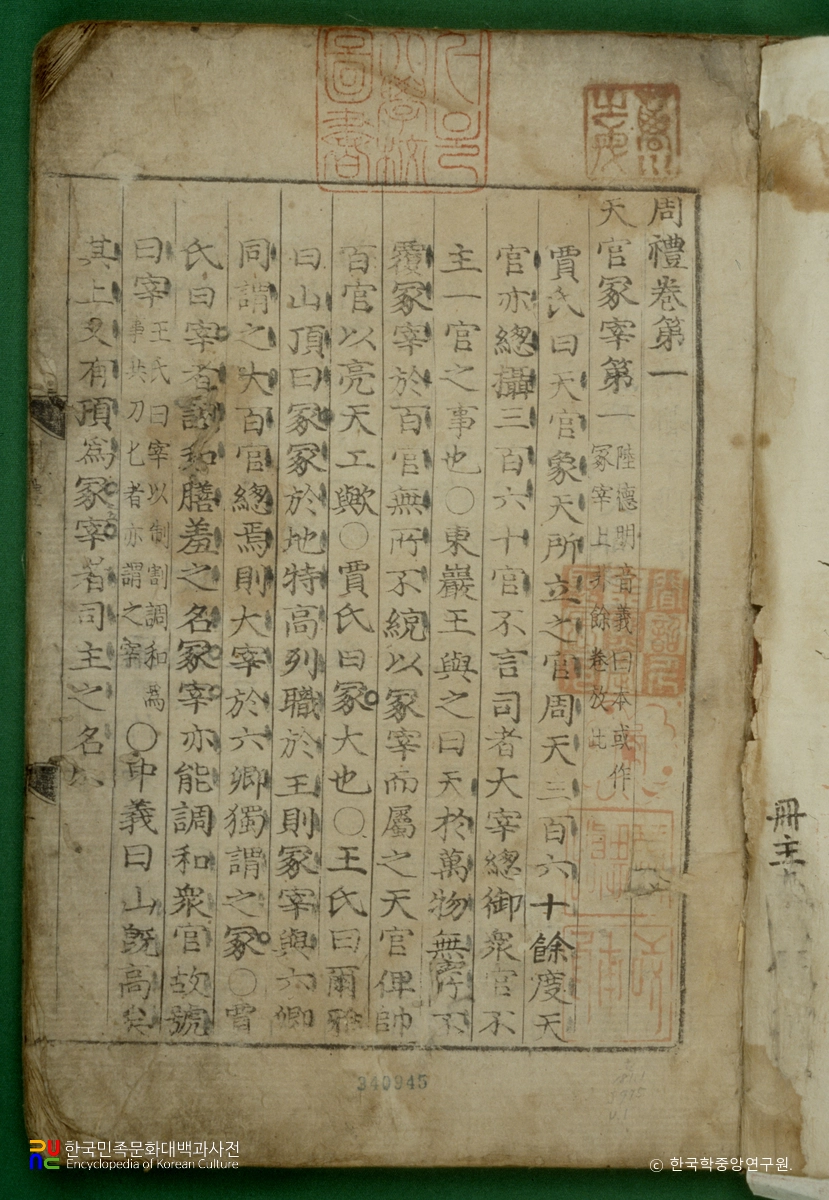 周禮卷第一
天官冢宰第一 陸德明音義曰本或作
冢宰上非餘卷放此
賈氏曰天官象天所立之官周天三百六十餘度天
官亦緫攝三百六十官不言司者大宰緫御衆官不
主一官之事也○東巖王與之曰天於萬物無所不
覆冢宰於百官無所不統以冢宰而屬之天官俾帥
百官以亮天工歟○賈氏曰冢大也○王氏曰爾雅
曰山頂曰冢冢於地特高列職於王則冢宰與六卿
同謂之大百官緫焉則大宰於六卿獨謂之冢○賈
氏曰宰者調和膳羞之名冢宰亦能調和衆官故號
曰宰 王氏曰宰以制割調和為
事共刀匕者亦謂之宰 ○印義曰山旣高矣
其上又有頂爲冢宰者司主之名
冊主
340945
한국민족문화대백과사전
Encyclopedia of Korean Culture
© 한국학중앙연구원.